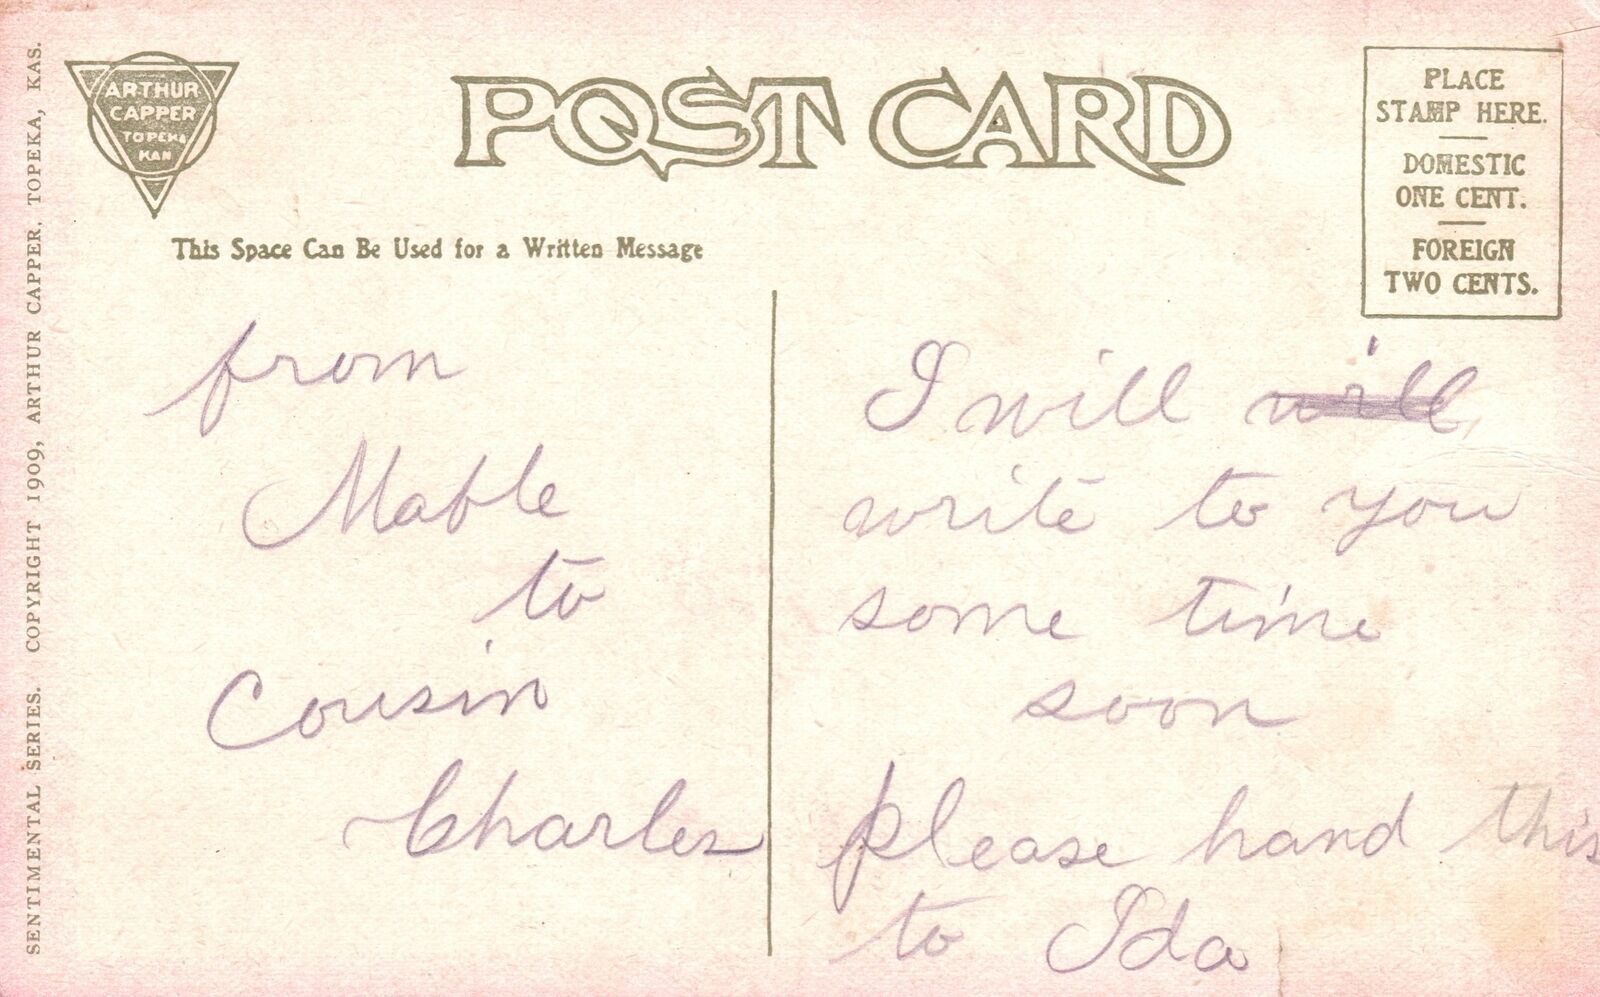 SENTIMENTAL SERIES. COPYRIGHT 1909, ARTHUR CAPPER, TOPEKA, KAS.
ARTHUR
CAPPER
TOPEKA
KAN
POST CARD
PLACE
STAMP HERE.
DOMESTIC
ONE CENT.
FOREIGN
TWO CENTS.
This Space Can Be Used for a Written Message
from
Mable
to
Cousin
Charles
I will will
write to you
some time
soon
please hand this
to Ida